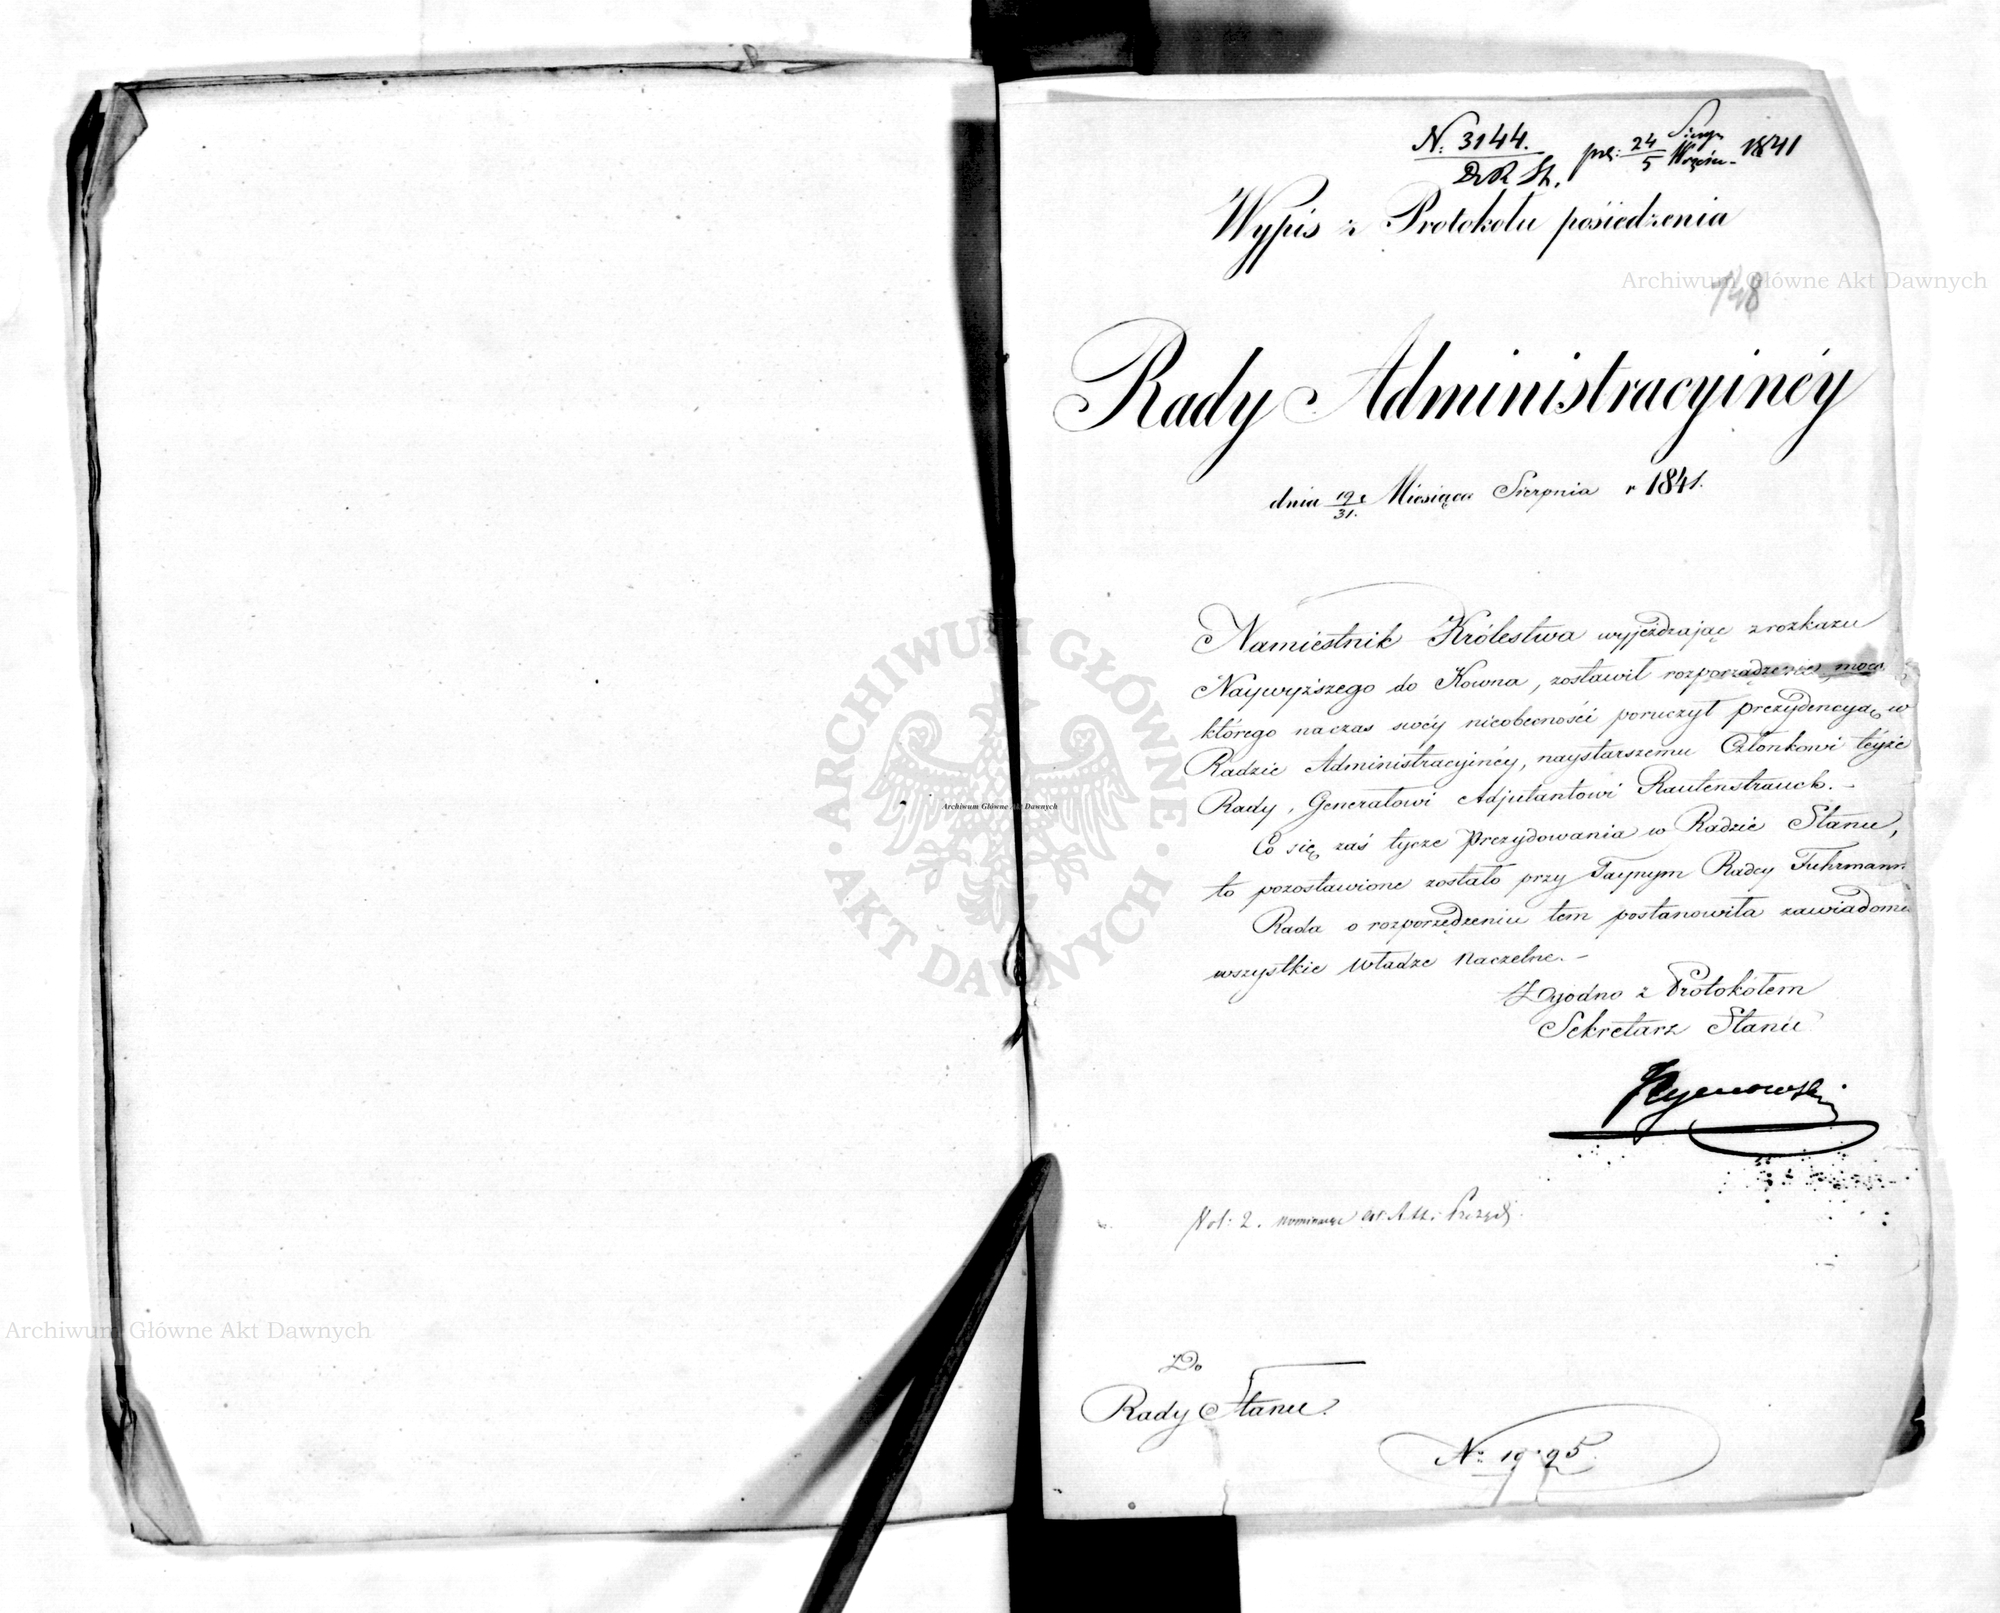 N: 3144.
D. R. St.
pr: 24/5 Sierp. Wrześn. 1841
Wypis z Protokołu posiedzenia
148
Rady Administracyinéy
dnia 19/31. Miesiąca Sierpnia r 1841.
Namiestnik Królestwa wyjeżdzając z rozkazu
Naywyższego do Kowna, zostawił rozporządzenie, mocą
którego na czas swéy nieobecności poruczył prezydencyą w
Radzie Administracyinéy, naystarszemu Członkowi téyże
Rady, Generałowi Adjutantowi Rautenstrauch. -
Co się zaś tycze Prezydowania w Radzie Stanu,
to pozostawione zostało przy Taynym Radcy Fuhrmann.
Rada o rozporządzeniu tem postanowiła zawiadomić
wszystkie Władze Naczelne. -
Zgodno z Protokółem
Sekretarz Stanu
Not: 2.
Do
Rady Stanu.
Archiwum Główne Akt Dawnych
Archiwum Główne Akt Dawnych
Archiwum Główne Akt Dawnych
ARCHIWUM GŁÓWNE
AKT DAWNYCH